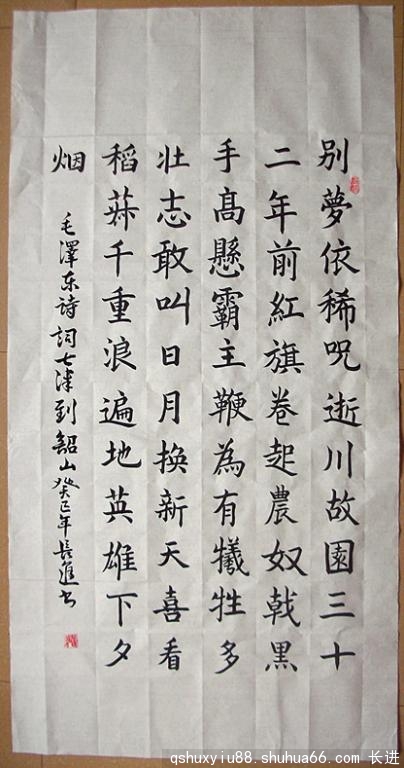 别夢依稀呪逝川故園三十
二年前紅旗卷起農奴戟黑
手高懸霸主鞭為有犧牲多
壯志敢叫日月换新天喜看
稻菽千重浪遍地英雄下夕
烟
毛澤东诗詞七律到韶山癸巳年長進书
qshuxyiu88.shuhua66.com 长进